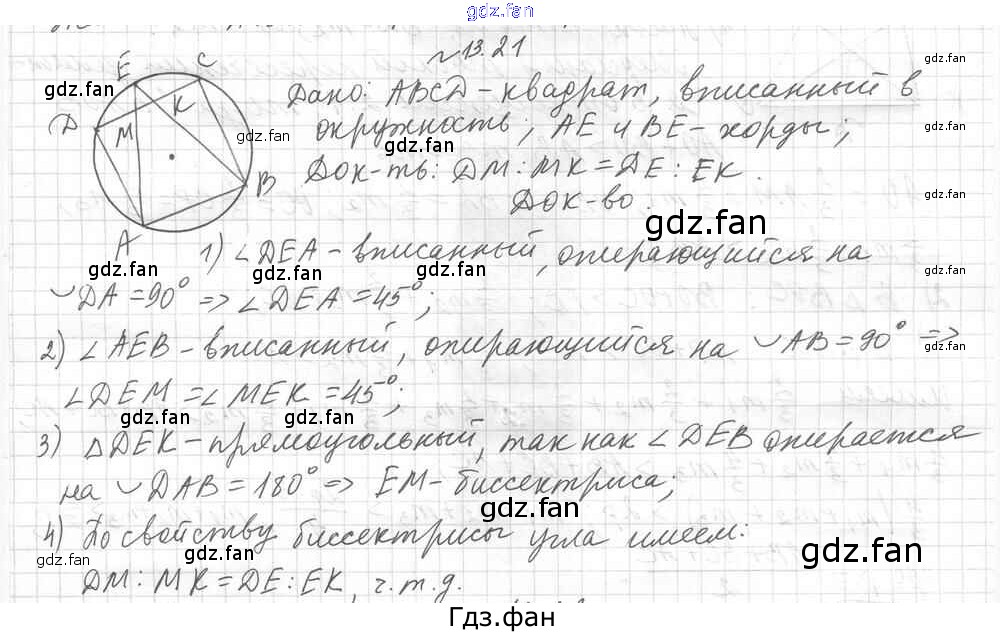 gdz.fan
№13.21
E C
gdz.fan
D M K
B
A
Дано: ABCD - квадрат, вписанный в
gdz.fan
окружность; AE и BE - хорды;
gdz.fan
gdz.fan
Док-ть: DM : MK = DE : EK.
gdz.fan
Док-во.
gdz.fan
gdz.fan
1) ∠DEA - вписанный, опирающийся на
gdz.fan gdz.fan gdz.fan gdz.fan
◡DA = 90° => ∠DEA = 45°;
2) ∠AEB - вписанный, опирающийся на ◡AB = 90° =>
gdz.fan
∠DEM = ∠MEK = 45°;
gdz.fan gdz.fan gdz.fan
3) △DEK - прямоугольный, так как ∠DEB опирается
на ◡DAB = 180° => EM - биссектриса;
gdz.fan
4) По свойству биссектрисы угла имеем:
gdz.fan gdz.fan gdz.fan
DM : MK = DE : EK, ч.т.д.
Гдз.фан